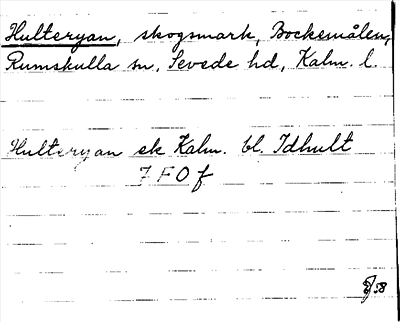 Hulteryan, skogsmark, Bockemålen,
Rumskulla sn, Sevede hd, Kalm. l.
Hulteryan ek Kalm. bl. Idhult
7 F 0 f
58